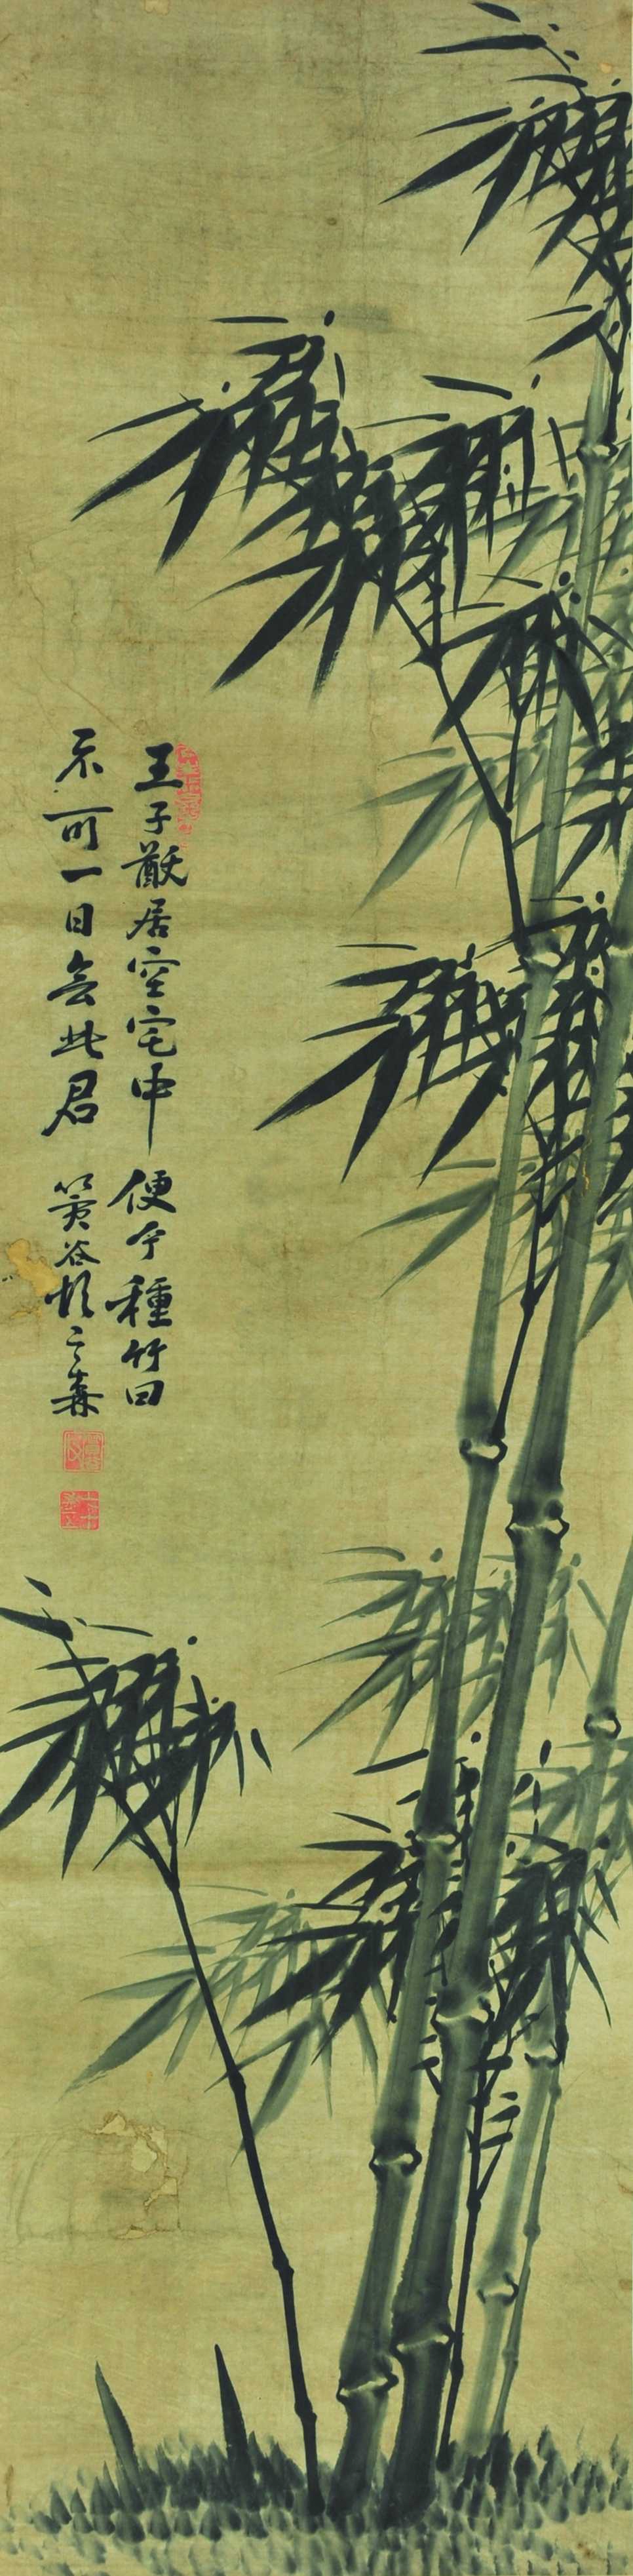 王子猷居空宅中便令種竹曰
不可一日無此君篔谷之森